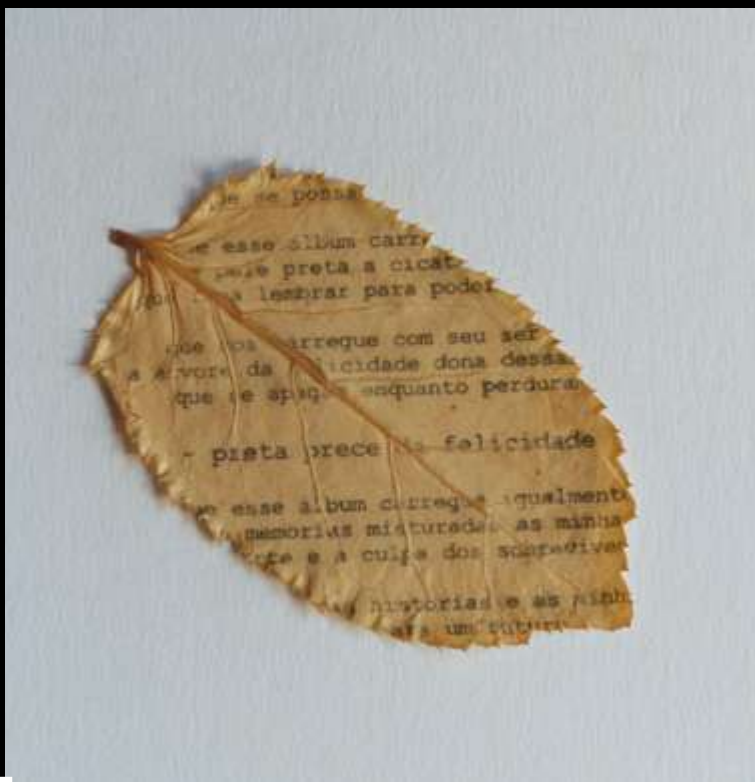 se possa
esse álbum carre
pele preta a cicat
lembrar para poder
que nos carregue com seu ser
a árvore da felicidade dona dessa
que se apaga enquanto perdura
- preta prece da felicidade
que esse álbum carregue igualmente
memorias misturadas as minha
e a culpa dos sobreviven
historias e as minh
um futuro